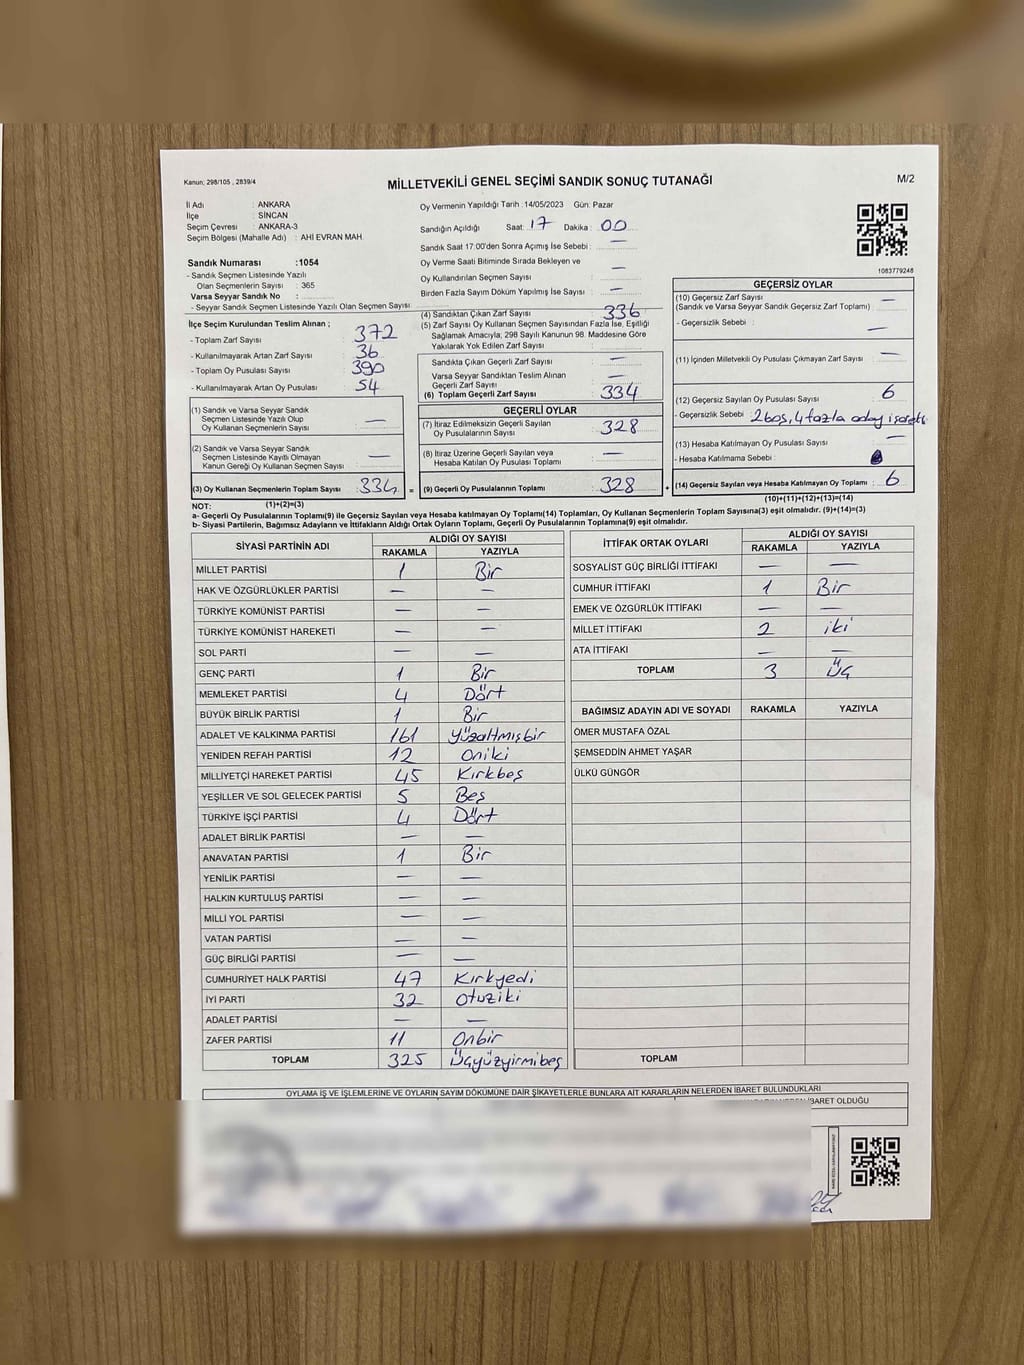 Kanun: 298/105 , 2839/4
MİLLETVEKİLİ GENEL SEÇİMİ SANDIK SONUÇ TUTANAĞI
M/2
İl Adı : ANKARA
İlçe : SİNCAN
Seçim Çevresi : ANKARA-3
Seçim Bölgesi (Mahalle Adı) : AHİ EVRAN MAH.
Sandık Numarası :1054
- Sandık Seçmen Listesinde Yazılı
Olan Seçmenlerin Sayısı : 365
Varsa Seyyar Sandık No :
- Seyyar Sandık Seçmen Listesinde Yazılı Olan Seçmen Sayısı
İlçe Seçim Kurulundan Teslim Alınan ;
- Toplam Zarf Sayısı : 372
- Kullanılmayarak Artan Zarf Sayısı : 36
- Toplam Oy Pusulası : 390
- Kullanılmayarak Artan Oy Pusulası : 54
(1) Sandık ve Varsa Seyyar Sandık
Seçmen Listesinde Yazılı Olup
Oy Kullanan Seçmenlerin Sayısı : —
(2) Sandık ve Varsa Seyyar Sandık
Seçmen Listesinde Kayıtlı Olmayan
Kanun Gereği Oy Kullanan Seçmen Sayısı : —
(3) Oy Kullanan Seçmenlerin Toplam Sayısı : 334 =
Oy Vermenin Yapıldığı Tarih : 14/05/2023 Gün: Pazar
Sandığın Açıldığı Saat: 17 Dakika : 00
Sandık Saat 17:00'den Sonra Açımış İse Sebebi : —
Oy Verme Saati Bitiminde Sırada Bekleyen ve
Oy Kullandırılan Seçmen Sayısı : —
Birden Fazla Sayım Döküm Yapılmış İse Sayısı : —
(4) Sandıktan Çıkan Zarf Sayısı : 336
(5) Zarf Sayısı Oy Kullanan Seçmen Sayısından Fazla İse, Eşitliği
Sağlamak Amacıyla; 298 Sayılı Kanunun 98. Maddesine Göre
Yakılarak Yok Edilen Zarf Sayısı :
Sandıkta Çıkan Geçerli Zarf Sayısı : —
Varsa Seyyar Sandıktan Teslim Alınan
Geçerli Zarf Sayısı : —
(6) Toplam Geçerli Zarf Sayısı : 334
GEÇERLİ OYLAR
(7) İtiraz Edilmeksizin Geçerli Sayılan
Oy Pusulalarının Sayısı : 328
(8) İtiraz Üzerine Geçerli Sayılan veya
Hesaba Katılan Oy Pusulası Toplamı : —
(9) Geçerli Oy Pusulalarının Toplamı : 328 +
1083779248
GEÇERSİZ OYLAR
(10) Geçersiz Zarf Sayısı : —
(Sandık ve Varsa Seyyar Sandık Geçersiz Zarf Toplamı)
- Geçersizlik Sebebi : —
(11) İçinden Milletvekili Oy Pusulası Çıkmayan Zarf Sayısı : —
(12) Geçersiz Sayılan Oy Pusulası Sayısı : 6
- Geçersizlik Sebebi : 2 boş, 4 fazla aday işaretli
(13) Hesaba Katılmayan Oy Pusulası Sayısı : —
- Hesaba Katılmama Sebebi :
(14) Geçersiz Sayılan veya Hesaba Katılmayan Oy Toplamı : 6
NOT: (1)+(2)=(3)
(10)+(11)+(12)+(13)=(14)
a- Geçerli Oy Pusulalarının Toplamı(9) ile Geçersiz Sayılan veya Hesaba katılmayan Oy Toplamı(14) Toplamları, Oy Kullanan Seçmenlerin Toplam Sayısına(3) eşit olmalıdır. (9)+(14)=(3)
b- Siyasi Partilerin, Bağımsız Adayların ve İttifakların Aldığı Ortak Oyların Toplamı, Geçerli Oy Pusulalarının Toplamına(9) eşit olmalıdır.
SİYASİ PARTİNİN ADI ALDIĞI OY SAYISI
RAKAMLA YAZIYLA
MİLLET PARTİSİ 1 Bir
HAK VE ÖZGÜRLÜKLER PARTİSİ — —
TÜRKİYE KOMÜNİST PARTİSİ — —
TÜRKİYE KOMÜNİST HAREKETİ — —
SOL PARTİ — —
GENÇ PARTİ 1 Bir
MEMLEKET PARTİSİ 4 Dört
BÜYÜK BİRLİK PARTİSİ 1 Bir
ADALET VE KALKINMA PARTİSİ 161 Yüzaltmışbir
YENİDEN REFAH PARTİSİ 12 Oniki
MİLLİYETÇİ HAREKET PARTİSİ 45 Kırkbeş
YEŞİLLER VE SOL GELECEK PARTİSİ 5 Beş
TÜRKİYE İŞÇİ PARTİSİ 4 Dört
ADALET BİRLİK PARTİSİ — —
ANAVATAN PARTİSİ 1 Bir
YENİLİK PARTİSİ — —
HALKIN KURTULUŞ PARTİSİ — —
MİLLİ YOL PARTİSİ — —
VATAN PARTİSİ — —
GÜÇ BİRLİĞİ PARTİSİ — —
CUMHURİYET HALK PARTİSİ 47 Kırkyedi
İYİ PARTİ 32 Otuziki
ADALET PARTİSİ — —
ZAFER PARTİSİ 11 Onbir
TOPLAM 325 Üçyüzyirmibeş
İTTİFAK ORTAK OYLARI ALDIĞI OY SAYISI
RAKAMLA YAZIYLA
SOSYALİST GÜÇ BİRLİĞİ İTTİFAKI — —
CUMHUR İTTİFAKI 1 Bir
EMEK VE ÖZGÜRLÜK İTTİFAKI — —
MİLLET İTTİFAKI 2 iki
ATA İTTİFAKI — —
TOPLAM 3 Üç
BAĞIMSIZ ADAYIN ADI VE SOYADI RAKAMLA YAZIYLA
ÖMER MUSTAFA ÖZAL
ŞEMSEDDİN AHMET YAŞAR
ÜLKÜ GÜNGÖR
TOPLAM
OYLAMA İŞ VE İŞLEMLERİNE VE OYLARIN SAYIM DÖKÜMÜNE DAİR ŞİKAYETLERLE BUNLARA AİT KARARLARIN NELERDEN İBARET BULUNDUKLARI
İBARET OLDUĞU